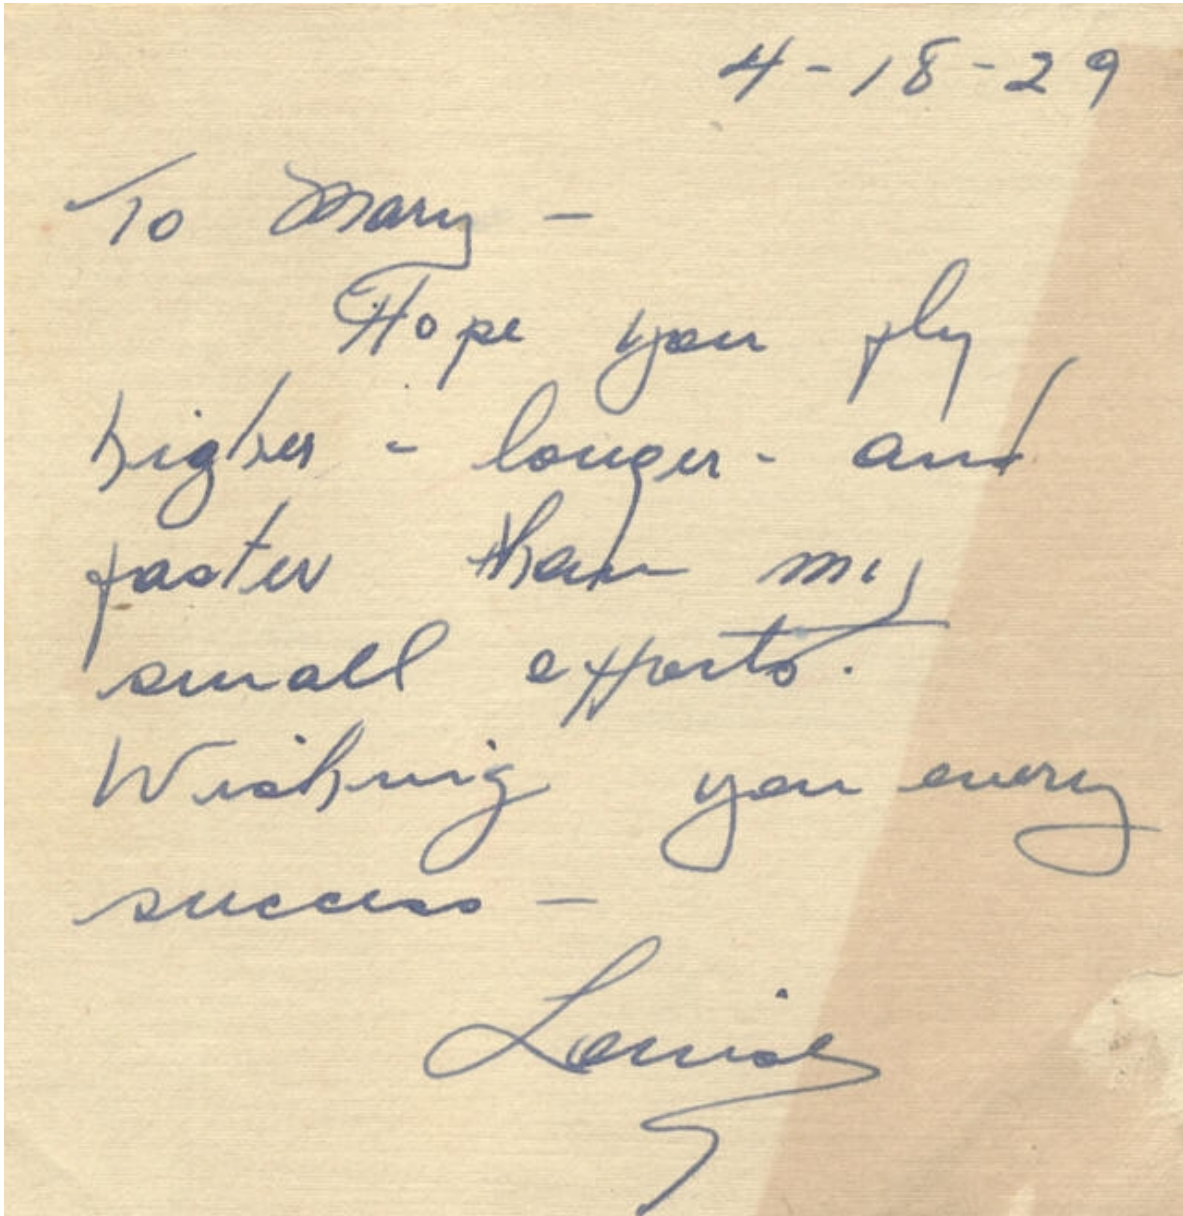 4-18-29
To Mary -
Hope you fly
higher - longer - and
faster than my
small efforts.
Wishing you every
success -
Louise